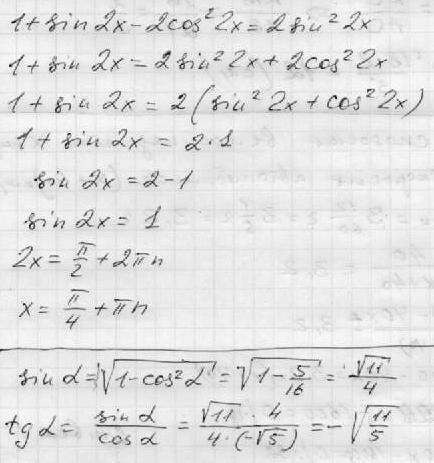 1 + sin 2x - 2cos² 2x = 2 sin² 2x
1 + sin 2x = 2 sin² 2x + 2 cos² 2x
1 + sin 2x = 2 (sin² 2x + cos² 2x)
1 + sin 2x = 2 · 1
sin 2x = 2 - 1
sin 2x = 1
2x = π/2 + 2πn
x = π/4 + πn
sin α = √(1 - cos² α) = √(1 - 5/16) = √11/4
tg α = sin α/cos α = √11 · 4/4 · (-√5) = -√(11/5)